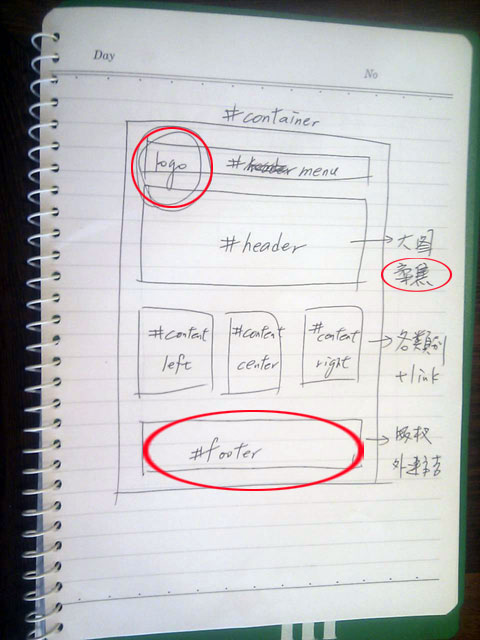 Day
No
#container
logo
#menu
#header
大图
#content
left
#content
center
#content
right
各類別
+link
#footer
版权